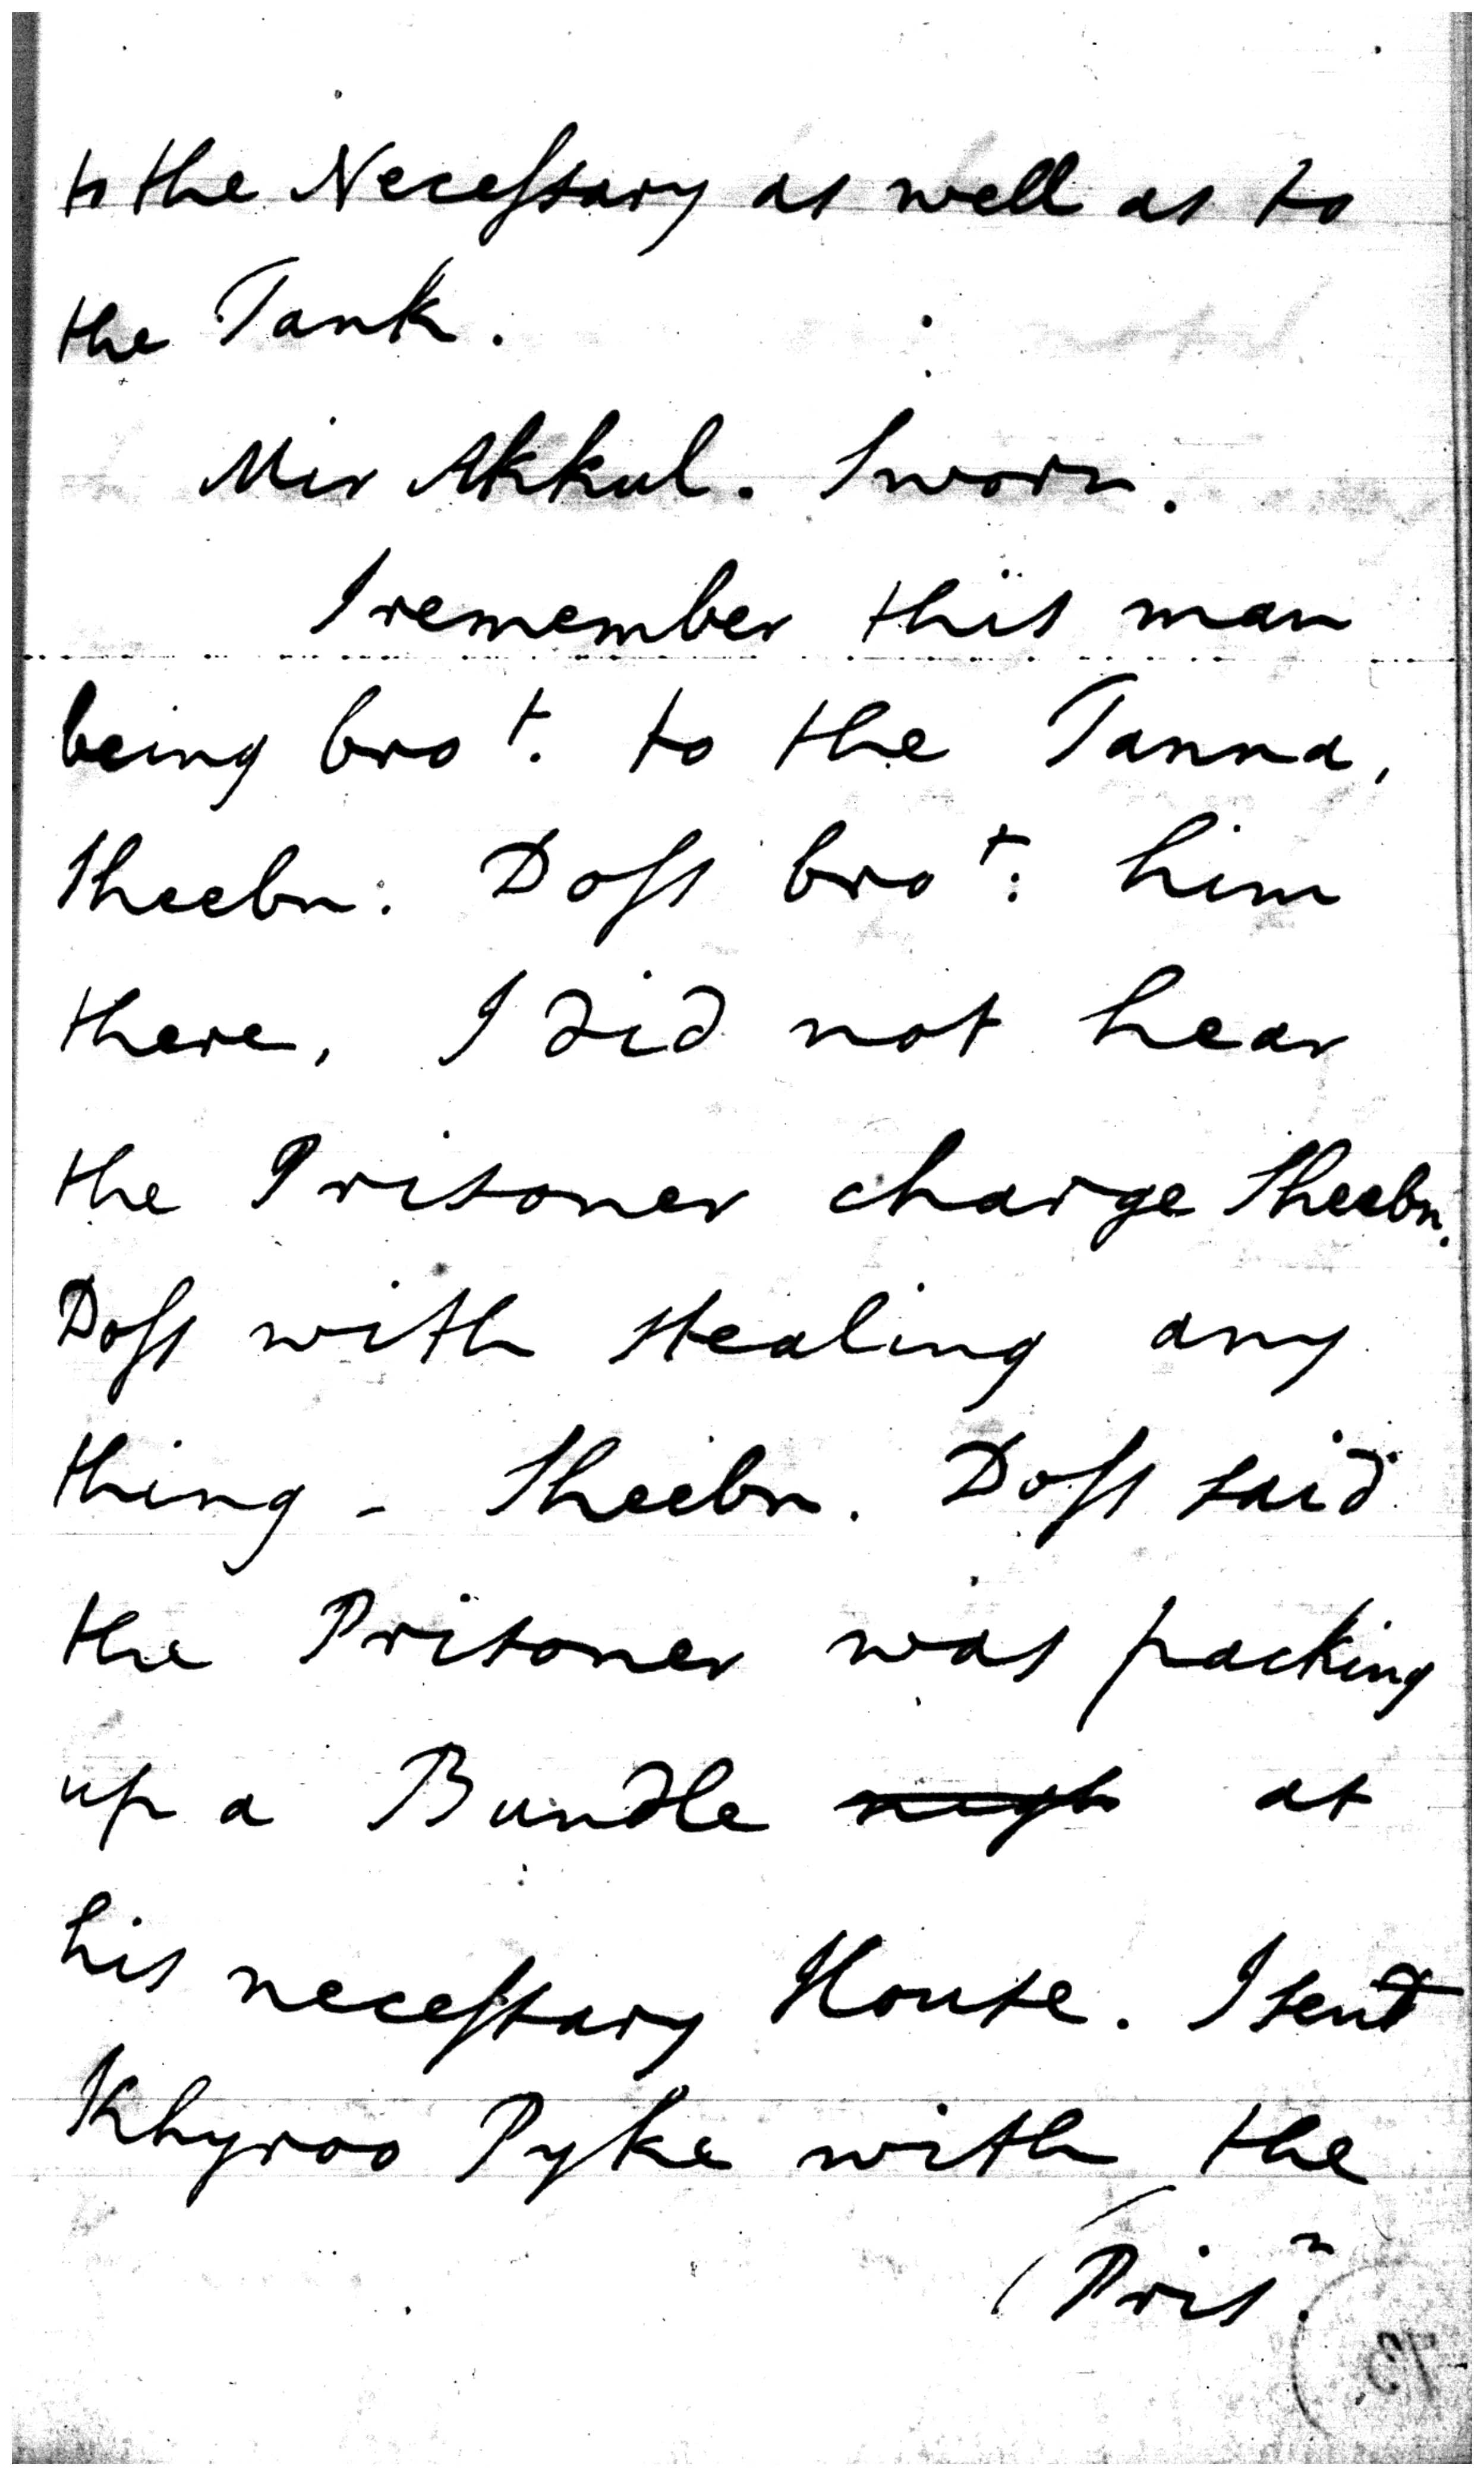 to the Necessary as well as to
the Tank.
Mir Akkul. Sworn.
I remember this man
being bro^t. to the Tanna,
Sheebn. Doss bro^t. him
there, I did not hear
the Prisoner charge Sheebn.
Doss with stealing any
thing - Sheebn. Doss said
the Prisoner was packing
up a Bundle at
his necessary House. I sent
Khyroo Pyke with the
Pris^n.